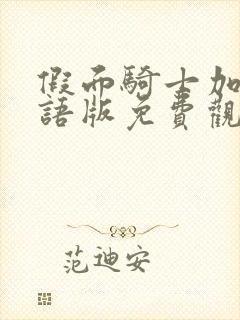 假面騎士加
語版免費觀
范迪安